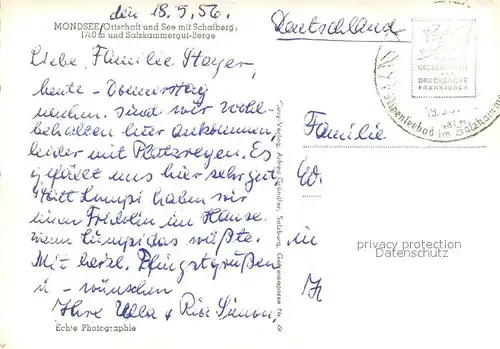 den 18.5.56.
MONDSEE, Ortschaft und See mit Schafberg,
1780 m und Salzkammergut-Berge
Liebe Familie Stager,
heute - Donnerstag
nachm. sind wir wohl-
behalten hier angekommen
leider mit Platzregen. Es
gefällt uns hier sehr gut
Statt Lumpi haben wir
einen Fridolin im Hause.
wenn Lumpi das wüßte.
Mit herzl. Pfingstgrüßen
u - wünschen
Ihre Ulla &
Echte Photographie
Salzburg
Deutschland
DRUCKSACHE
FRANKIEREN
Alpenseebad im Salzkammer
Familie
in
privacy protection
Datenschutz